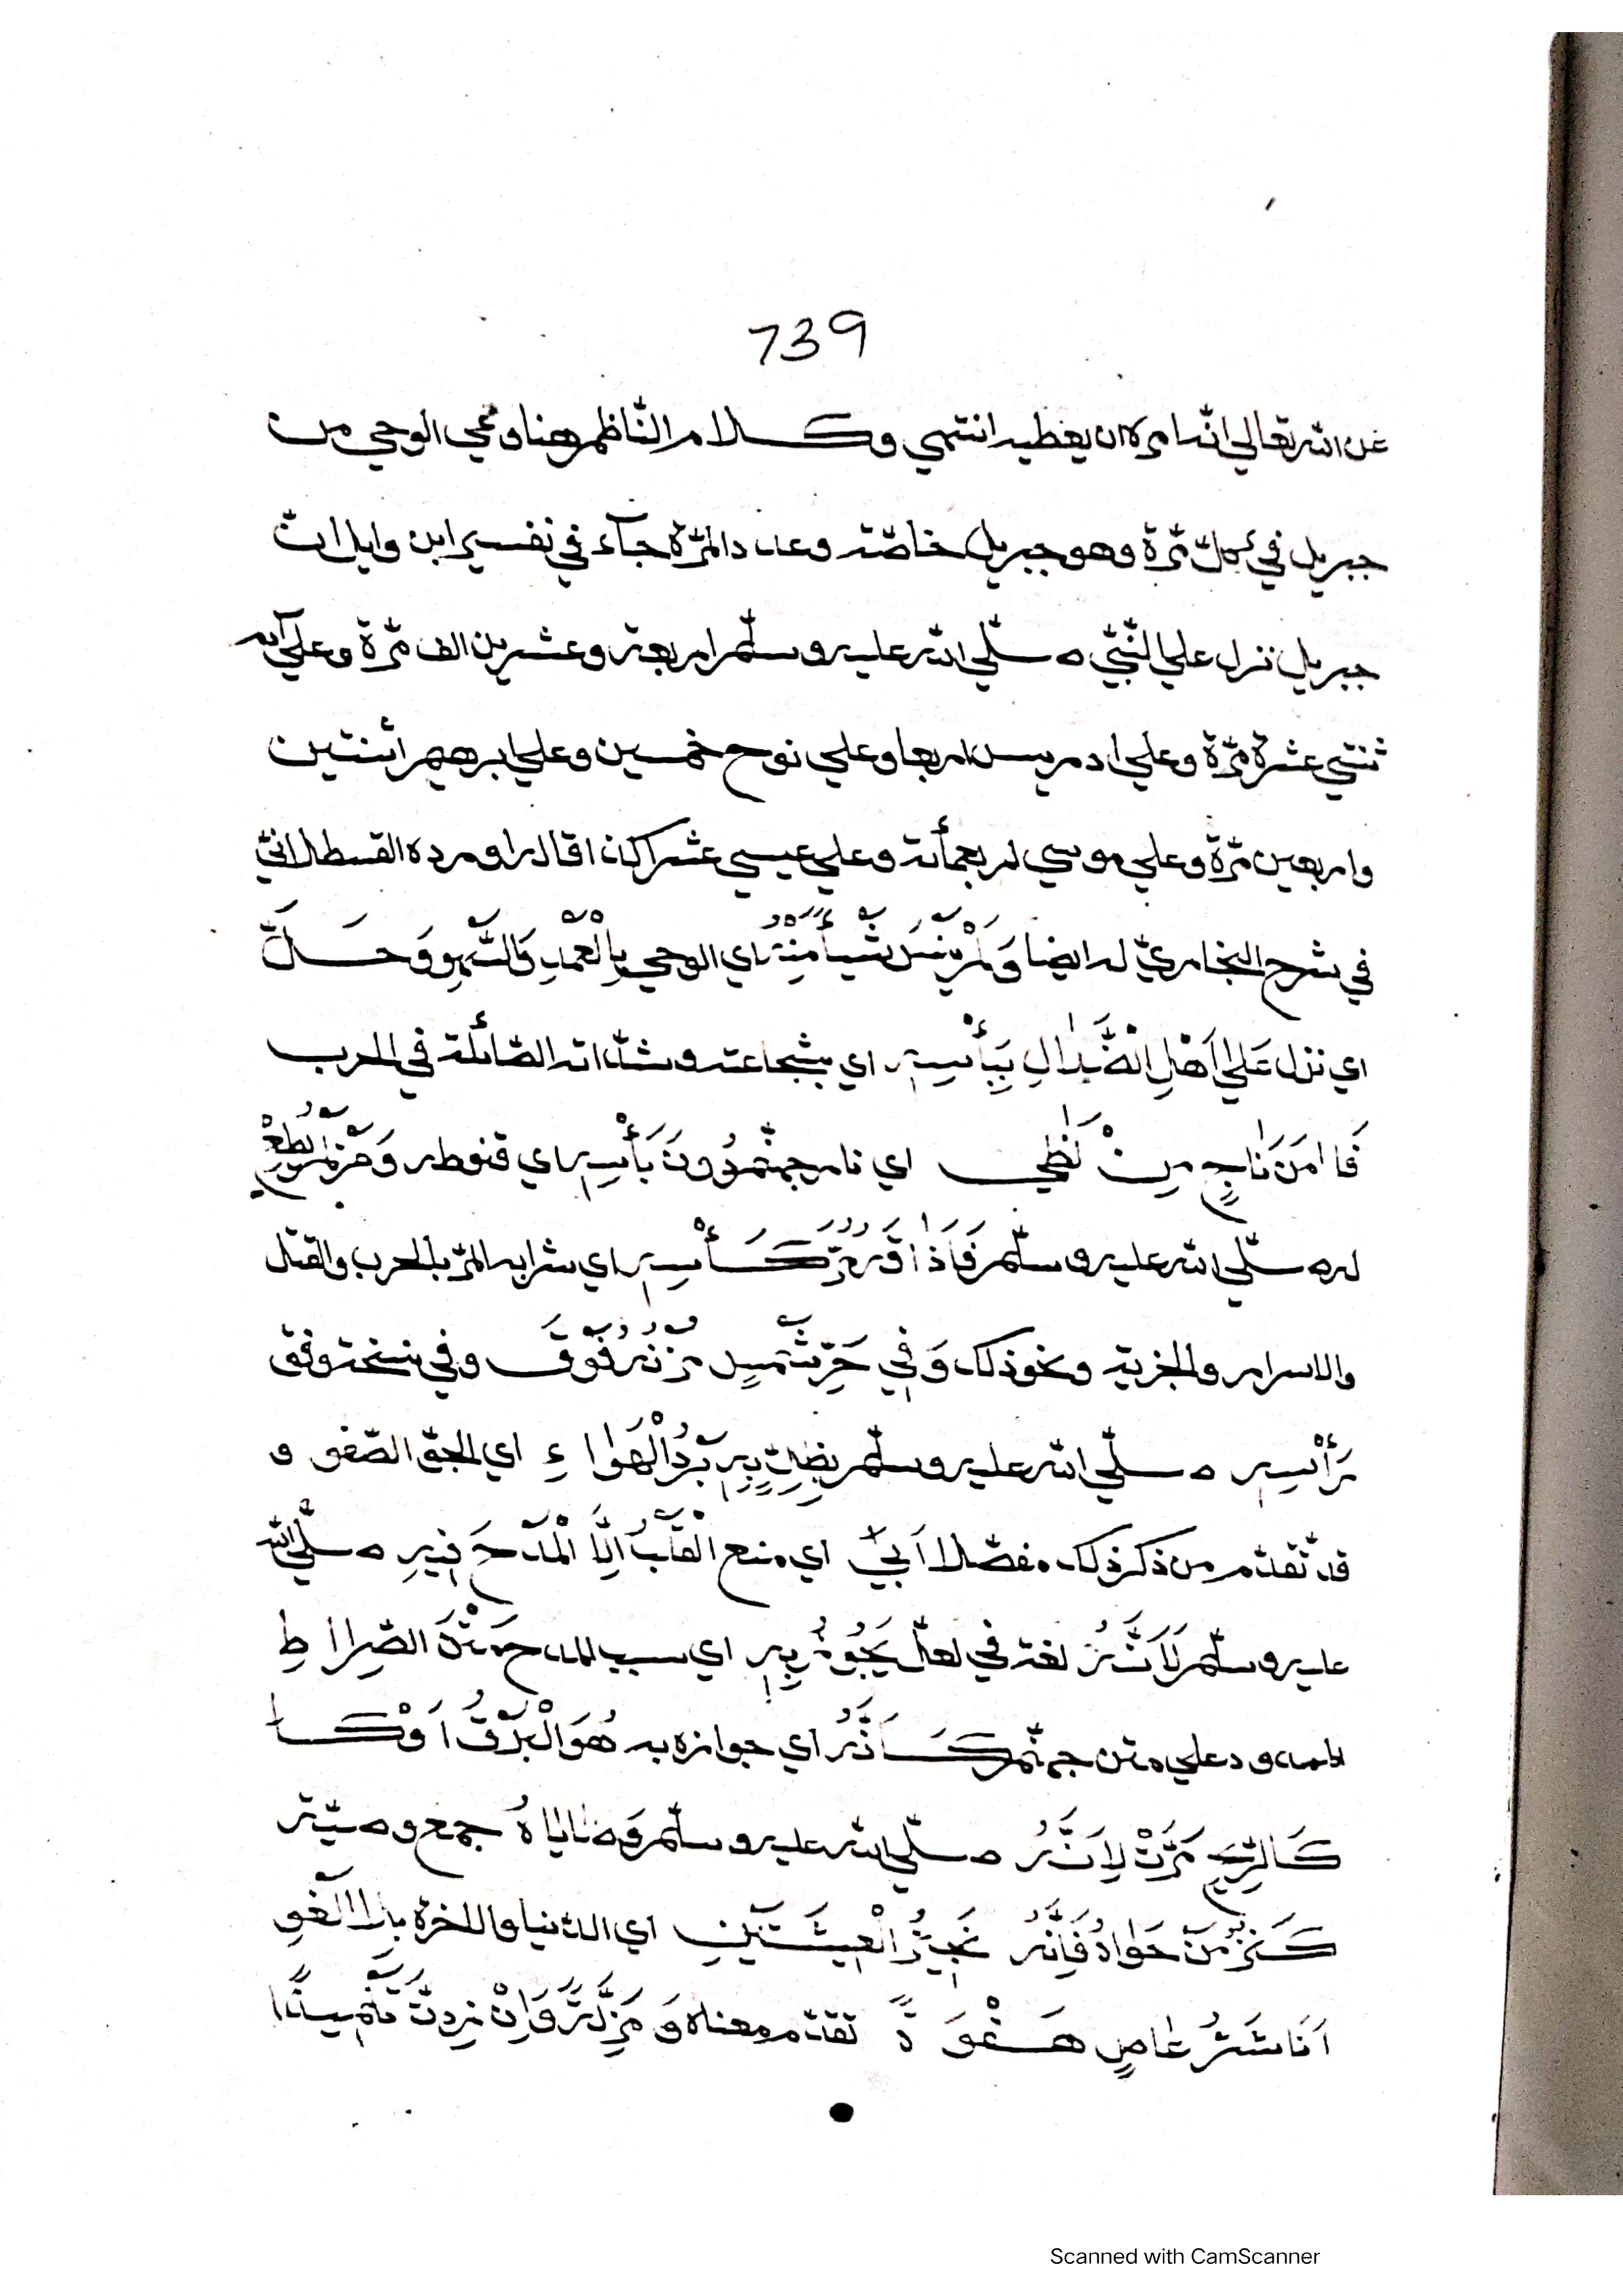 739
عن الله تعالي انه امره ان يغطيه انتهي وكلام الناظم هنا وعي الوحي من
جبريل في كل مرة وهو جبريل خاصة وعدد المرة جاء في تفسير ابن وايل ان
جبريل نزل علي النبي صلي الله عليه وسلم اربعة وعشرين الف مرة وعلي آدم
ثنتي عشرة مرة وعلي ادريس اربعا وعلي نوح خمسين وعلي ابرهيم اثنتين
واربعين مرة وعلي موسي اربعمأئة وعلي عيسي عشرا كذا قال اورده القسطلاني
في شرح البخاري له ايضا وَلَمْ يَنْسَ شَيْأً مِنْهُ اي الوحي بِالْعَمْدِ وَالسَّهْوِ وَحَلَّ
اي نزل عَلَي اَهْلِ الضَّلَالِ بِبَأْسِهِ اي بشجاعته وشدته الصائلة في الحرب
فَمَا مَنْ نَاجٍ مِنْ لَظَي اي نار جهنم دُونَ بَأْسِهِ اي قنوطه وَمَنْ لَمْ يُطِعْ
له صلي الله عليه وسلم فَذَاقَ مُرَّ كَأْسِهِ اي شرابه المر بالحرب والقتل
والاسر والجزية ونحو ذلك وَفِي حَرِّ شَمْسٍ مُزْنُهُ فَوْقَ وفي نسخة وفق
رَأْسِهِ صلي الله عليه وسلم بَرْدُ الْهَوَاءِ اي الجو الصفو و
قد تقدم من ذكر ذلك مفصلا اَبَي اي منع الْقَلْبُ اِلَّا الْمَدْحَ فِيهِ صلي الله
عليه وسلم لَاَنَّهُ لغة في لعل يَجُوزُ بِهِ اي سبب المدح مَتْنَ الصِّرَاطِ
الممدود علي متن جهنم كَاَنَّهُ اي جوازه به هُوَ الْبَرْقُ اَوْ كَا
كَالرِّيحِ مَرَّتْ لِاَنَّهُ صلي الله عليه وسلم وَصَايَاهُ جمع وصية
كَنْزٌ مَنْ حَوَاهُ فَاِنَّهُ اي الدنيا والاخرة بلا الغو
اَنَا شَرُّ عَاصٍ هَفْوَةً تقدم معناه وَمَزِلَّةً وَاِنْ زِدْتَ تَلْعِينًا
Scanned with CamScanner